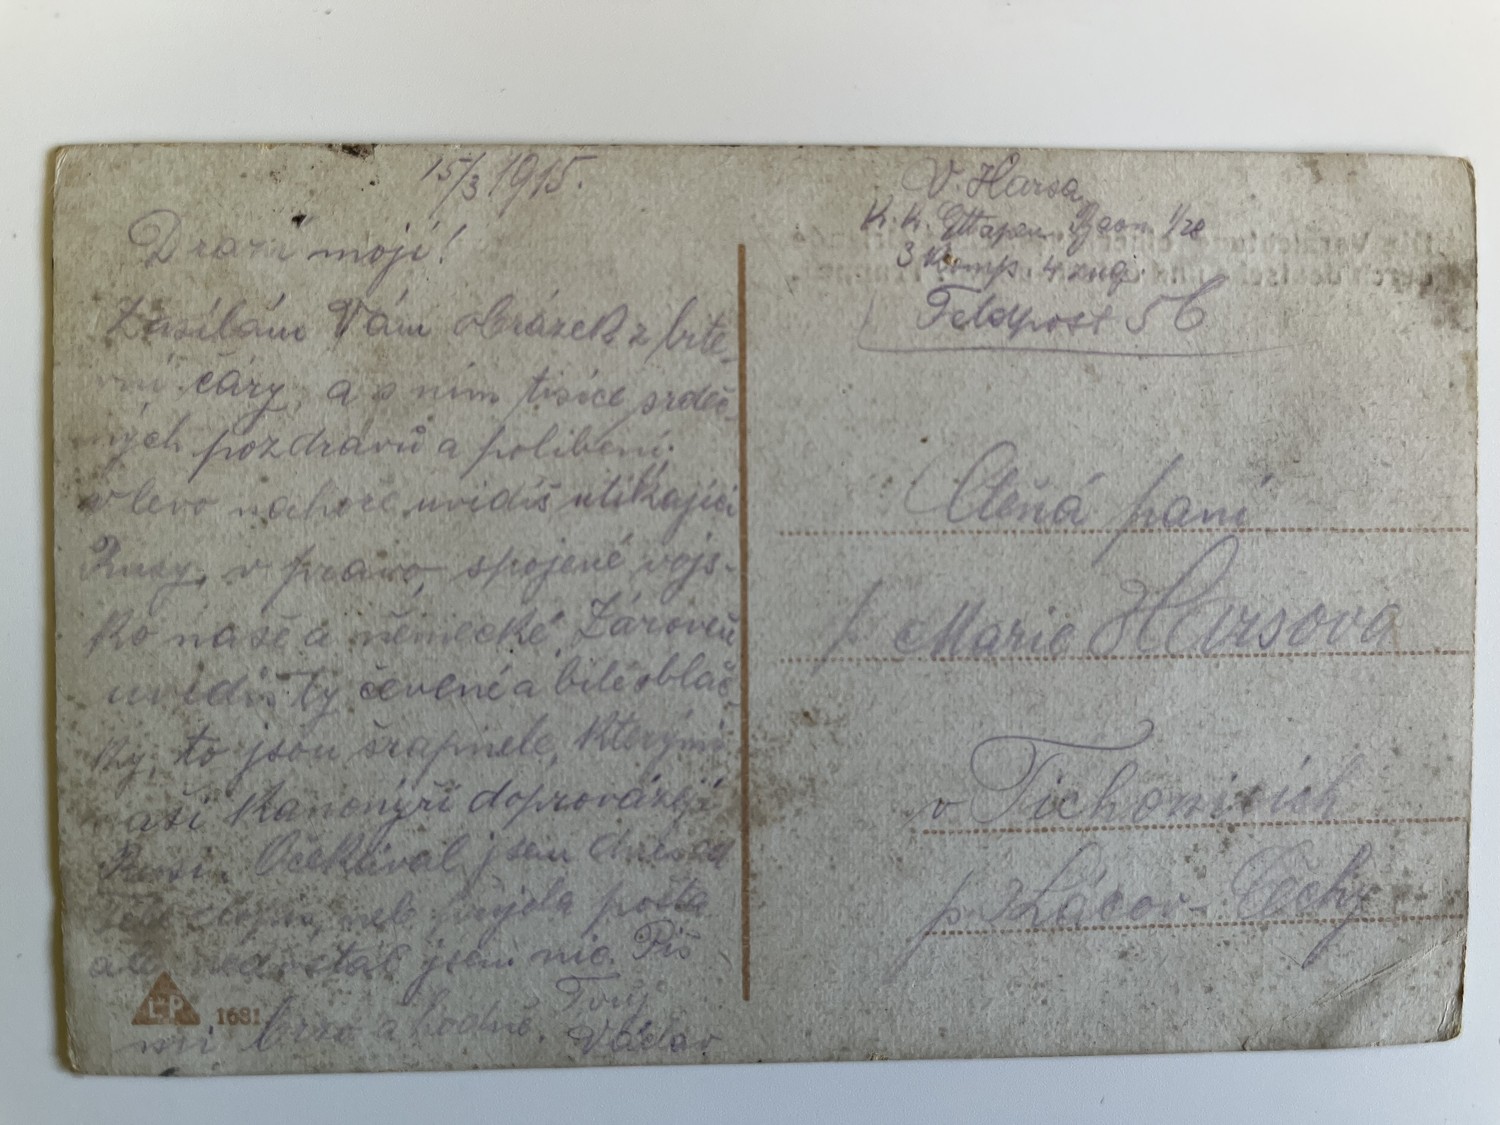 15/3 1915.
Drazí moji!
Zasílám Vám obrázek z bite-
vní čáry, a s ním tisíce srdeč-
ných pozdravů a políbení.
v levo nahoře uvidíš utíkající
Rusy, v pravo, spojené vojs-
ko naše a německé. Zároveň
uvidíš Ty červené a bílé obláč-
ky, to jsou šrapnele, kterými
naši kanonýři doprovázejí
Rusi. Očekával jsem dnes od
Tebe neb přijela pošta
ale nedostal jsem nic. Piš
mi brzo a hodně. Tvůj
Václav
L-P 1681
V. Harsa
K. K. Ettapen Baon. 1/20
3 Komp. 4 zug.
Feldpost 56
Ctěná paní
p Marie Harsova
v Tichonicích
p. Lácov - Čechy